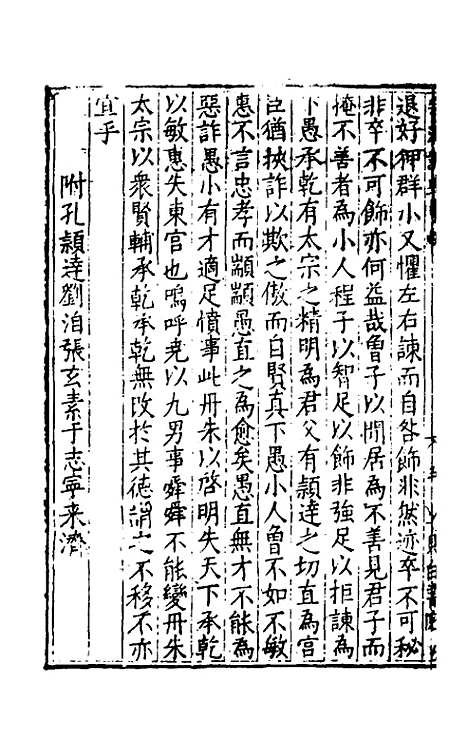 退好狎群小又懼左右諫而自咎飾非然迹卒不可秘
非卒不可飾亦何益哉魯子以閒居為不善見君子而
掩不善者為小人程子以智足以飾非強足以拒諫為
下愚承乾有太宗之精明為君父有頴達之切直為宮
臣猶挾詐以欺之傲而自賢真下愚小人魯不如不敏
惠不言忠孝而顓顓愚直之為愈矣愚直無才不能為
惡詐愚小有才適足憤事此丹朱以啓明失天下承乾
以敏惠失東宮也嗚呼堯以九男事舜舜不能變丹朱
太宗以衆賢輔承乾承乾無改於其德謂之不移不亦
宜乎
附孔頴達劉洎張玄素于志寧来濟